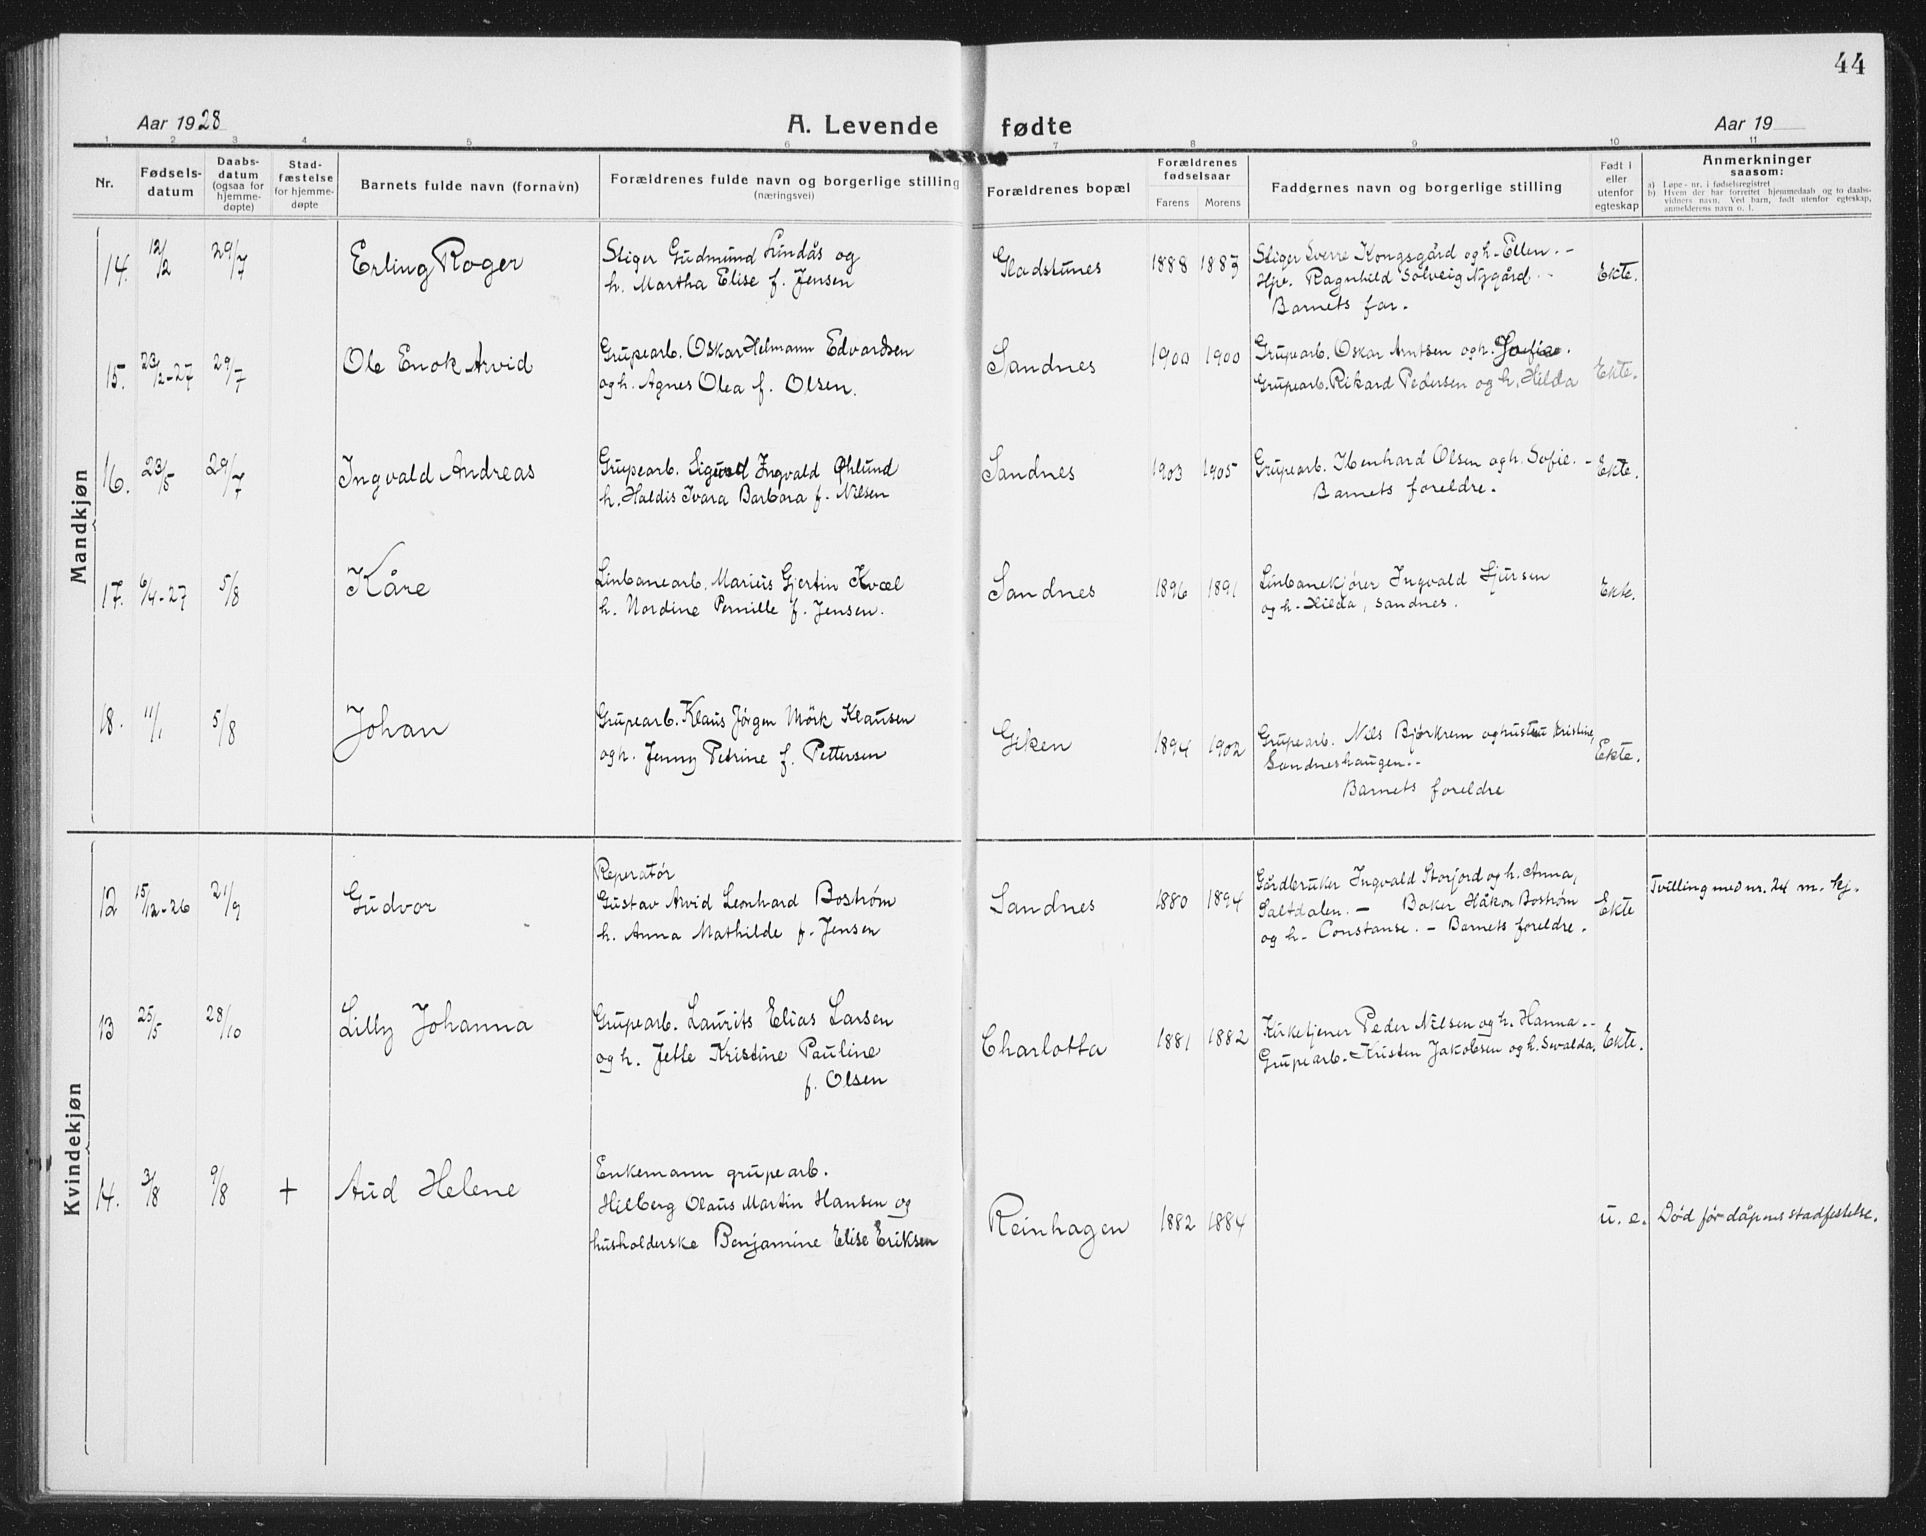 44
Aar 1928 A. Levende fødte Aar 19
1 2 3 4 5 6 7 8 9 10 11
Nr.
Fødsels-
datum
Daabs-
datum
(ogsaa for
hjemme-
døpte)
Stad-
fæstelse
for hjemme-
døpte
Barnets fulde navn (fornavn)
Forældrenes fulde navn og borgerlige stilling
(næringsvei)
Forældrenes bopæl
Forældrenes
fødselsaar
Farens Morens
Faddernes navn og borgerlige stilling
Født i
eller
utenfor
egteskap
Anmerkninger
saasom:
a) Løpe-nr. i fødselsregistret
b) Hvem der har forrettet hjemmedaab og to daabs-
vidners navn. Ved barn, født utenfor egteskap,
anmelderens navn o. l.
Mandkjøn
14. 12/2 29/7 Erling Roger
Stiger Gudmund Lindås og
h. Martha Elise f. Jensen
Gladstunes 1888 1883
Stiger Sverre Kongsgård og h. Ellen. -
Hpe. Ragnhild Solveig Nygård. -
Barnets far.
Ekte.
15. 23/2-27 29/7 Ole Enok Arvid
Grupearb. Oskar Helmann Edvardsen
og h. Agnes Olea f. Olsen.
Sandnes 1900 1900
Grupearb. Oskar Arntsen og h. Sofie.
Grupearb. Rikard Pedersen og h. Hilda
Ekte.
16. 23/5 29/7 Ingvald Andreas
Grupearb. Sigurd Ingvald Øhlund
h. Haldis Ivara Barbara f. Nilsen
Sandnes 1903 1905
Grupearb. Ibenhard Olsen og h. Sofie. -
Barnets foreldre.
Ekte.
17. 6/4-27 5/8 Kåre
Linbanearb. Marius Gjertin Kvæl
h. Nordine Pernille f. Jensen.
Sandnes 1896 1891
Linbanekjører Ingvald Sjursen
og h. Hilda, Sandnes.
Ekte.
18. 11/1 5/8 Johan
Grupearb. Klaus Jørgen Mörk Klausen
og h. Jenny Petrine f. Pettersen
Giken 1894 1902
Grupearb. Nils Bjørkrem og hustru Kristine,
Sandneshaugen. -
Barnets foreldre
Ekte.
Kvindekjøn
12 15/12-26 21/9 Gudvor
Reperatør
Gustav Arvid Leonhard Boström
h. Anna Mathilde f. Jensen
Sandnes 1880 1894
Gårdbruker Ingvald Storjord og h. Anna,
Saltdalen. - Baker Håkon Boström
og h. Constanse. - Barnets foreldre.
Ekte
Tvilling med nr. 24 m. kj.
13 25/5 28/10 Lilly Johanna
Grupearb. Laurits Elias Larsen
og h. Jette Kristine Pauline
f. Olsen
Charlotta 1881 1882
Kirketjener Peder Nilsen og h. Hanna. -
Grupearb. Kristen Jakobsen og h. Sevalda.
Ekte.
14. 3/8 9/8 + Aud Helene
Enkemann grupearb.
Hilberg Olaus Martin Hansen og
husholderske Benjamine Elise Eriksen
Reinhagen 1882 1884
u. e.
Død før dåpens stadfestelse.